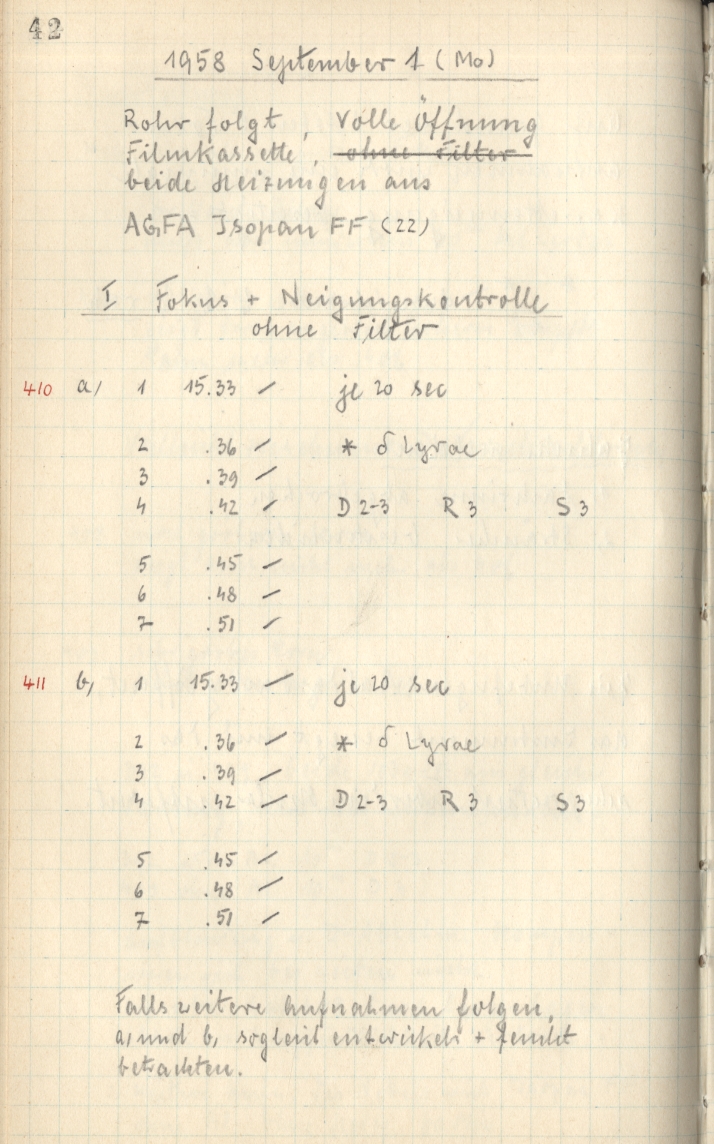 42
1958 September 1 (Mo)
Rohr folgt, Volle Öffnung
Filmkassette, ohne Filter
beide Heizungen aus
AGFA Isopan FF (22)
I Fokus + Neigungskontrolle
ohne Filter
410 a, 1 15.33 / je 20 sec
2 .36 / * δ Lyrae
3 .39 /
4 .42 / D 2-3 R 3 S 3
5 .45 /
6 .48 /
7 .51 /
411 b, 1 15.33 / je 20 sec
2 .36 / * δ Lyrae
3 .39 /
4 .42 / D 2-3 R 3 S 3
5 .45 /
6 .48 /
7 .51 /
Falls weitere Aufnahmen folgen,
a, und b, sogleich entwickeln + feucht
betrachten.